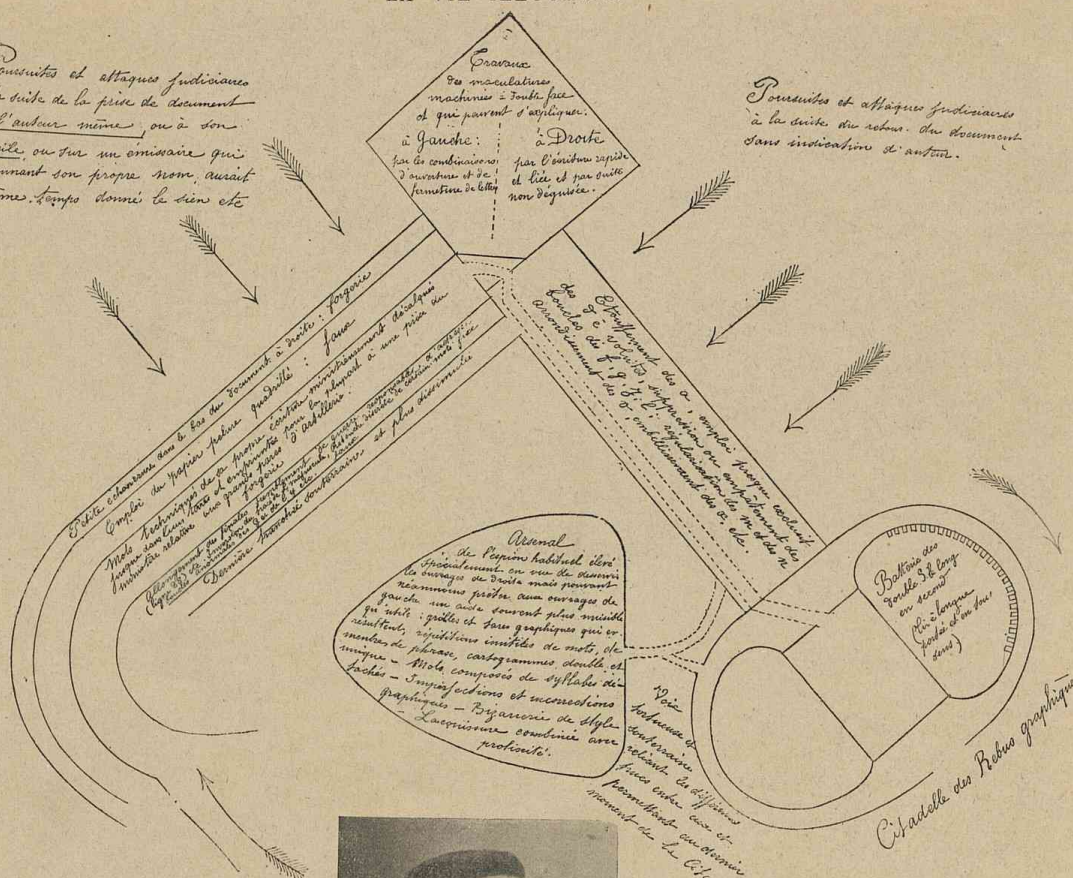 Poursuites et attaques judiciaires
suite de la prise de document
l'auteur même, ou à son
ou sur un émissaire qui
son propre nom, aurait
temps donné le sien etc
Travaux
des maculatures
machinées à double face
et qui peuvent s'expliquer.
à Gauche:
par les combinaisons
d'ouverture et de
fermeture de lettre
à Droite
par l'écriture rapide
et liée et par suite
non déguisée.
Poursuites et attaques judiciaires
à la suite du retour du document
sans indication d'auteur.
Petite échancrure dans le bas du document à droite: forgerie
Emploi du papier pelure quadrillé: faux
Mots techniques de sa propre écriture minutieusement décalqués
et empruntés pour la plupart à une pièce du
minutère relative aux grands parcs d'artillerie.
forgerie
Dernière tranchée souterraine et plus dissimulée
Etouffement des a, emploi presque exclusif
des volutes, suppression ou empâtement des
boucles des f, g, régularisation des m et des n
arrondissement des v, embellissement des x, etc
Arsenal
de l'espion habituel élevé
spécialement en vue de desservir
les ouvrages de Droite mais pouvant
néanmoins prêter aux ouvrages de
gauche un aide souvent plus nuisible
qu'utile: grilles et tares graphiques qui en
résultent, répétitions inusitées de mots, de
membres de phrase, cartogrammes, double et
unique - Mots composés de syllabes dé-
tachés - Imperfections et incorrections
graphiques - Bizarrerie de style
- Laconisme combiné avec
prolixité.
Batterie des
double S & long
en second
(Tir à longue
portée et en tous
sens)
Voie
tortueuse et
souterraine
reliant les différentes
entre eux et
permettant au dernier
moment de
Citadelle des Rébus graphiques